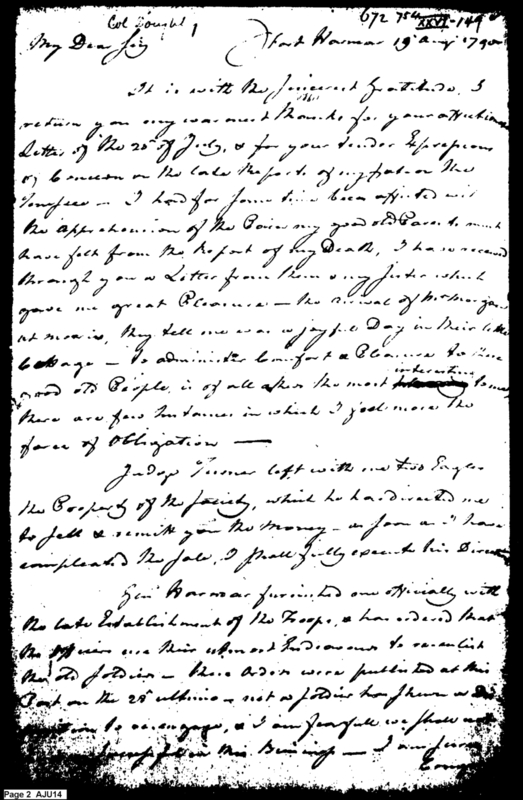 Col Vought 1
672 75th XXVI-149
My Dear Sir Fort Harmar 19 Augt 1790
It is with the sincerest Gratitude, I
return you my warmest thanks for your affectionate
Letter of the 20th of July, & for your tender Expressions
of Concern on the late Report of my fate on the
Tenessee — I had for some time been affected with
the apprehension of the Pain my good old Parents must
have felt from the Report of my Death, I have received
through you a Letter from them & my Sister which
gave me great Pleasure — the arrival of Mr Morgan
at they tell me was a joyful Day in their little
Cottage — to administer Comfort & Pleasure to these
interesting
good old People, is of all others the most to me
there are few Instances in which I feel more the
force of Obligation —
Judge Turner left with me two Eagles
the Property of the Society, which he has directed me
to sell & remitt you the Money — as soon as I have
compleated the sale, I shall fully execute his Direc
Genl Harmar furnished me officially with
the late Establishment of the Troops, & has ordered that
the Officers use their utmost Endeavours to reenlist
the old soldiers — these Orders were published at this
Post on the 28th ultimo — not a soldier has shewn a Dis
position to reengage, & I am fearfull we shall not
successful in this Business — I am
Page 2 AJU14